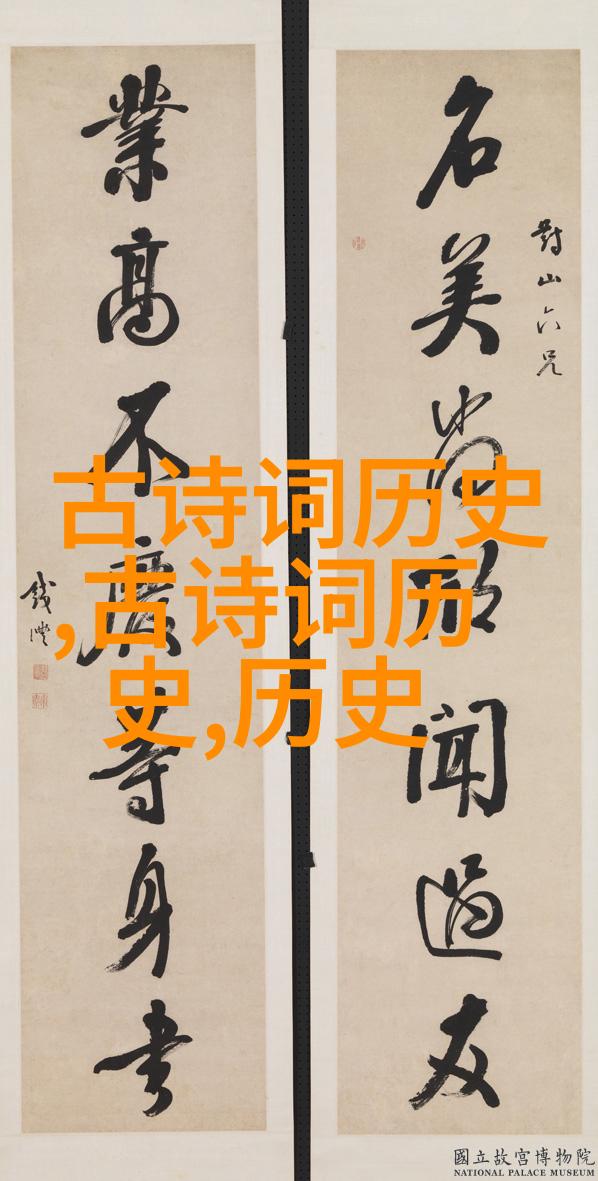 對山六兄
名美尚欣聞過友
業高不廢等身書
錢灃
古诗词历史
,古诗词历
史,历史
國立故宮博物院
NATIONAL PALACE MUSEUM